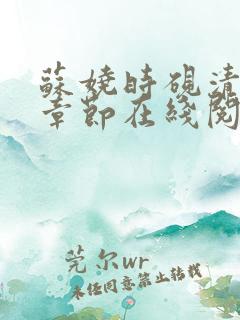 蘇嬈時硯清
章節在綫閱
莞尔wr
未经同意禁止转载